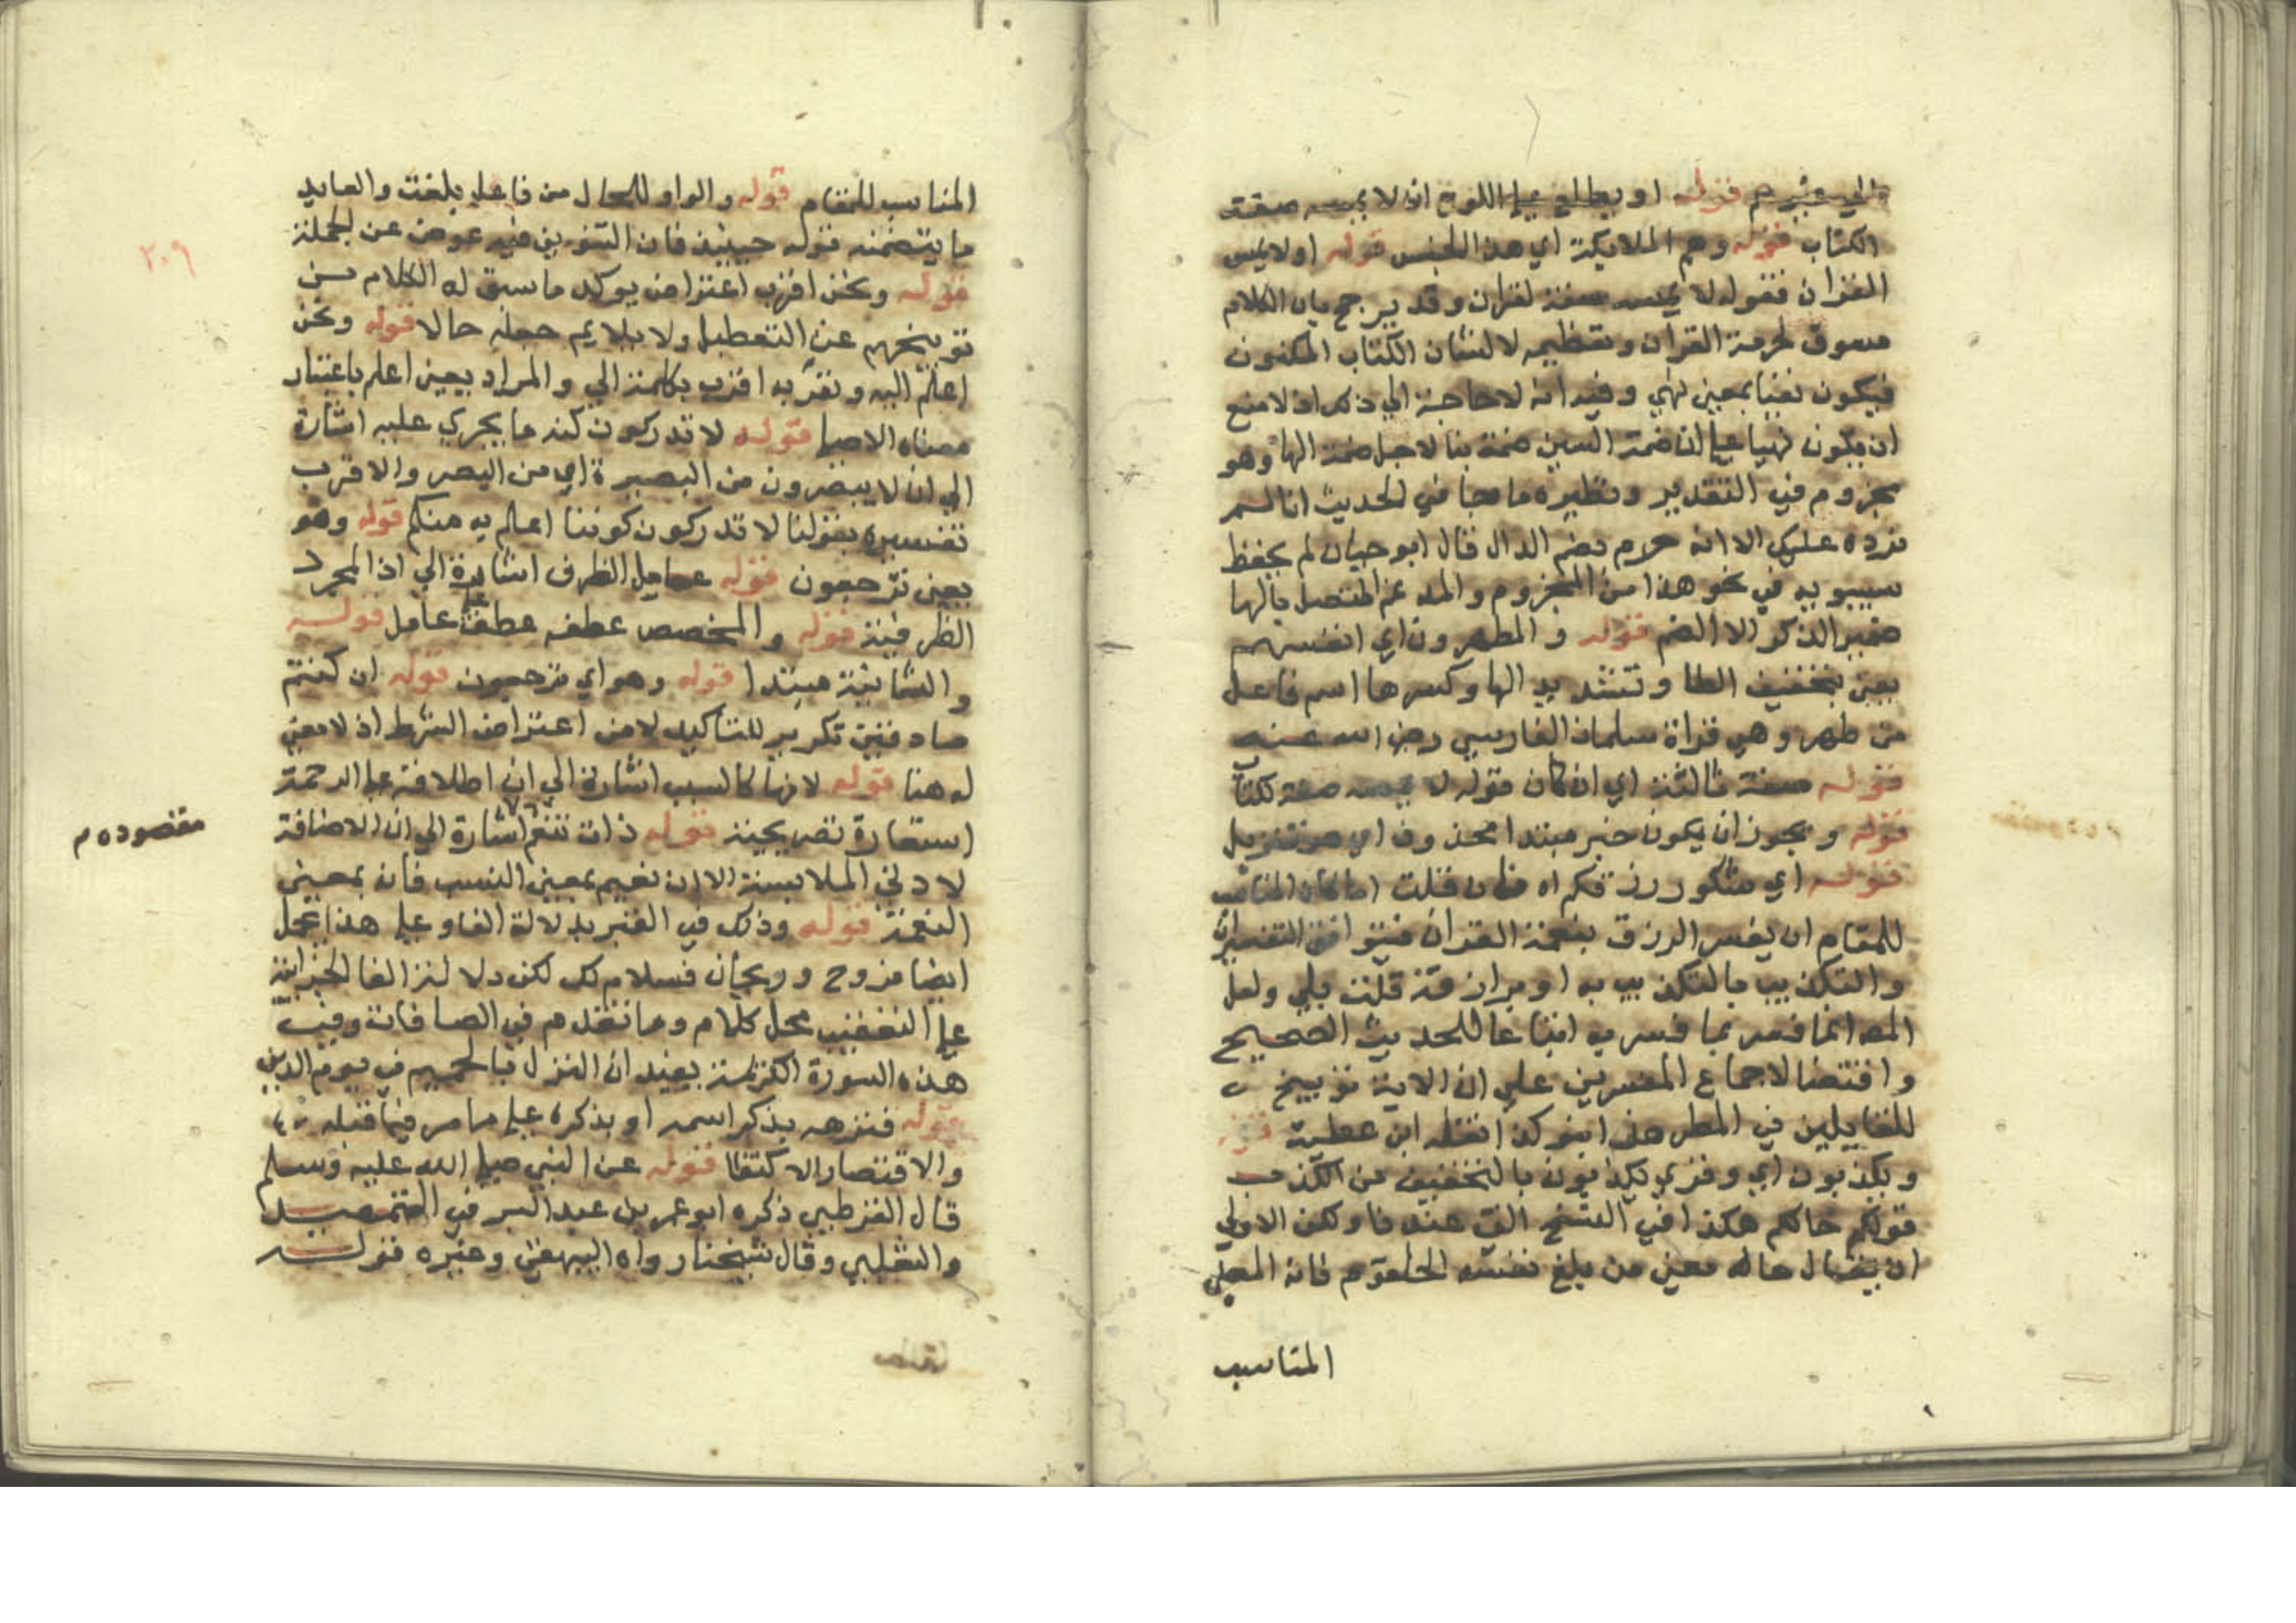 الي غيرهم قوله او يطلع علي اللوح ان لا يمسه صفت
الكتاب قوله وهم الملايكة اي هذا الجنس قوله او لا يمس
القران فقوله لا يمسه صفة لقران وقد يرجح بان الكلام
مسوق لحرمة القران وتعظيمه لا لشان الكتاب المكنون
فيكون نفيا بمعني نهي وفيه انه لا حاجة الي ذلك اذ لا منع
ان يكون نهيا علي ان ضمة السين ضمة بنا لاجل ضمة الها وهو
مجزوم في التقدير ونظيره ما جا في الحديث انا لم
نرده عليك الا انا حرم بضم الدال قال ابو حيان لم يحفظ
سيبويه في نحو هذا من المجزوم والمدغم المتصل بالها
ضمير المذكر الا الضم قوله والمطهرون اي انفسهم
يعني بتخفيف الطا وتشديد الها وكسرها اسم فاعل
من طهر وهي قراة سلمان الفارسي رضي الله عنه
قوله صفة ثالثة اي ان كان قوله لا يمسه صفة لكتاب
قوله ويجوز ان يكون خبر مبتدا محذوف اي هو تنزيل
قوله اي شكر رزقكم اه فان قلت اما كان المناسب
للمقام ان يفسر الرزق بنعمة القران فيتوافق التفسيران
والتكذيب بالتكذيب به او بران قلت بلي ولعل
المص انما فسر بما فسر به اتباعا للحديث الصحيح
واقتضا لاجماع المفسرين علي ان الاية توبيخ
للقايلين في المطر هذا بنو كذا نقله ابن عطية قوله
وتكذبون اي وقري تكذبون بالتخفيف من الكذب
قولكم حالكم هكذا في النسخ التي عندنا ولكن الاولي
ان يقال حاله معني من بلغ نفسه الحلقوم فانه المعني
المناسب
المناسب للمقام قوله والواو للحال من فاعل بلغت والعايد
ما يتضمنه قوله حينيذ فان التنوين فيه عوض عن الجملة
قوله ونحن اقرب اعتراض يوكد ما سيق له الكلام من
توبيخهم عن التعطيل ولا يلايم جعله حالا قوله ونحن
اعلم اليه ونقربه اقرب بكلمة الي والمراد يعني اعلم باعتبار
معناه الاصلي قوله لا تدركون كنه ما يجري عليه اشارة
الي ان لا يبصرون من البصيرة اي من البصر والاقرب
تفسيره بقولنا لا تدركون كوننا اعلم به منكم قوله وهو
بمعني ترجعون قوله عامل الظرف اشارة الي اذا المجرد
الظرفية قوله والمخصص عطفه عطف علي عامل قوله
والثانية مبتدا قوله وهو اي ترجعون قوله ان كنتم
صادقين تكرير للتاكيد لا من اعتراض الشرط اذ لا معني
له هنا قوله لانها كالسبب اشارة الي ان اطلاقه علي الرحمة
استعارة تصريحية قوله ذات تنعم اشارة الي ان الاضافة
لادني الملابسة الا ان نعيم بمعني النسب فانه بمعني
النعمة قوله وذلك في القبر بدلالة الفا وعلي هذا يحمل
ايضا فروح وريحان فسلام لك لكن دلالة الفا الجزاية
علي التعقيب محل كلام وما تقدم في الصافات وفي
هذه السورة اكثر منه يفيد ان النزل بالحميم في يوم الدين
قوله فنزهه بذكر اسمه او بذكره علي ما مر فيما قبله
والاقتصار الاكتفا قوله عن النبي صلي الله عليه وسلم
قال القرطبي ذكره ابو عمر بن عبد البر في التمهيد
والثعلبي وقال شيخنا رواه البيهقي وغيره قوله
مقصوده م
٢٠٩